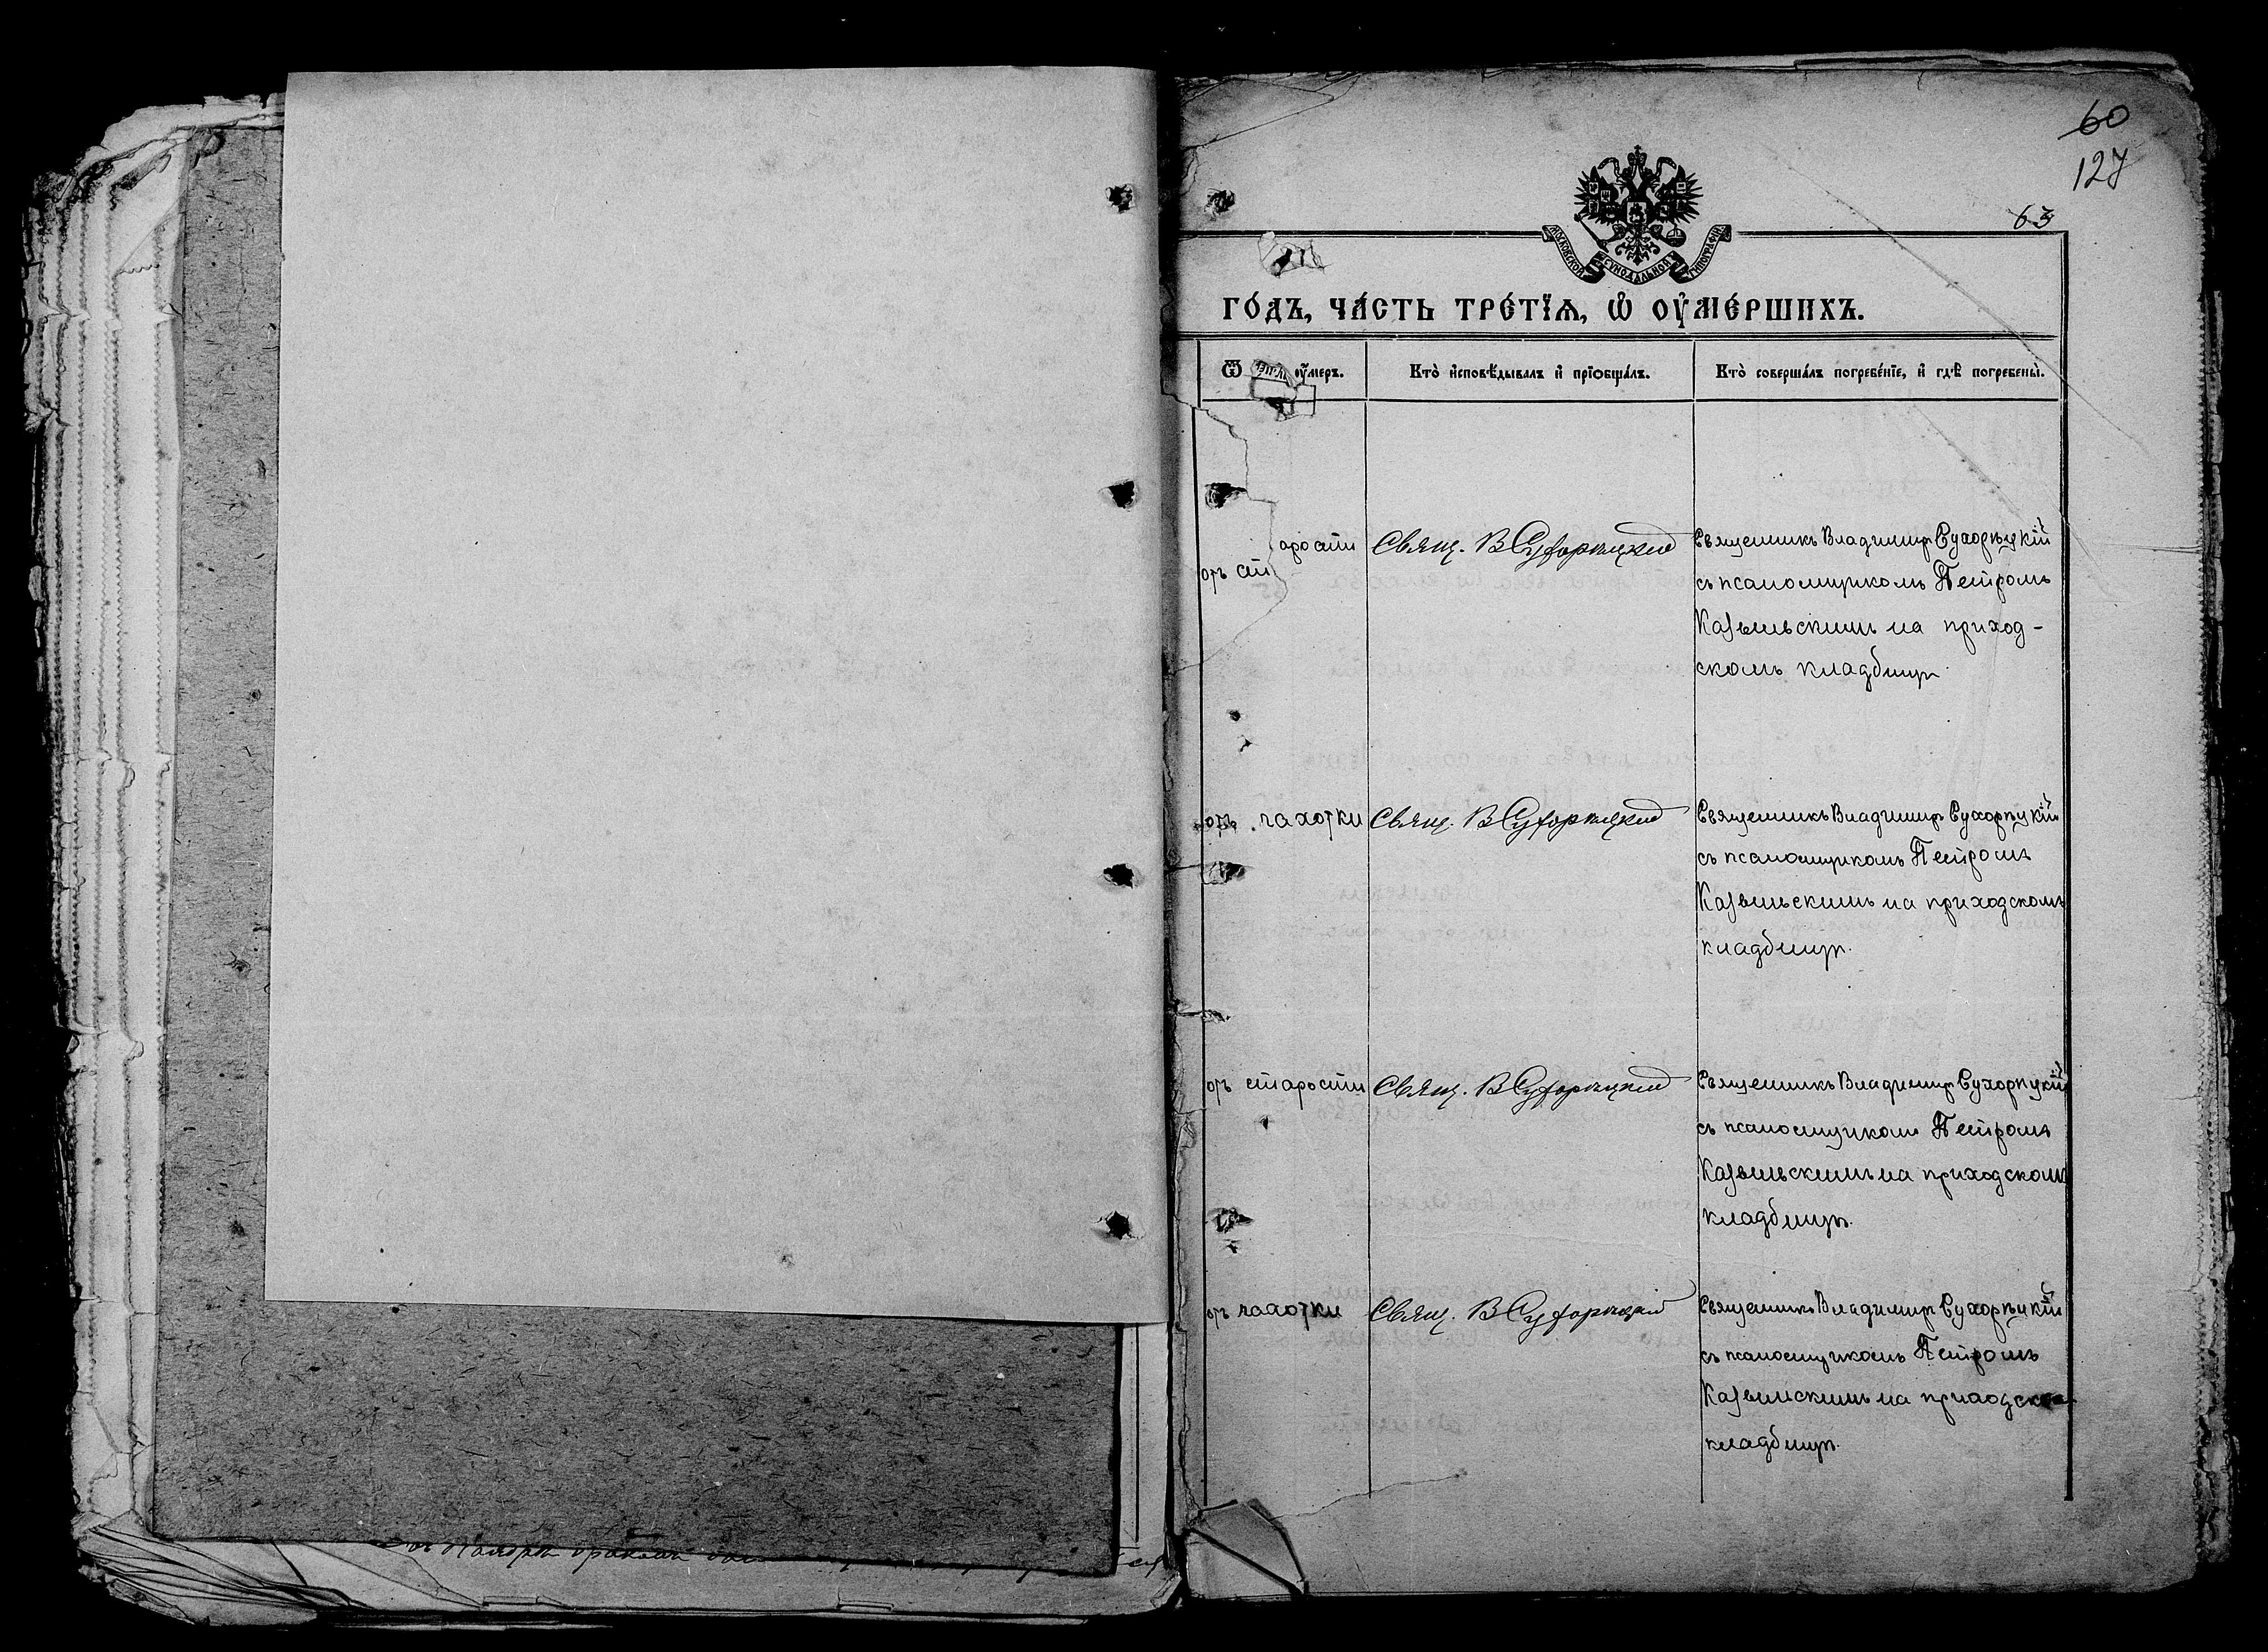 60
127
63
МОСКОВСКОЙ СУНОДАЛЬНОЙ ТИПОГРАФІИ
ГО́ДЪ, ЧА́СТЬ ТРЕ́ТЇѦ, Ѽ ОУ҆МЕ́РШИХЪ.
Ѿ оу҆́меръ.
Кто̀ и҆сповѣ́дывалъ и҆ прїѻбща́лъ.
Кто̀ соверша́лъ погребе́нїе, и҆ гдѣ̀ погребены̀.
отъ старости
Свящ. В Сухорѣцкій
Священникъ Владимиръ Сухорѣцкій
съ псаломщикомъ Петромъ
Казельскимъ на приход-
скомъ кладбищѣ.
отъ чахотки
Свящ. В Сухорѣцкій
Священникъ Владимиръ Сухорѣцкій
съ псаломщикомъ Петромъ
Казельскимъ на приходскомъ
кладбищѣ.
отъ старости
Свящ. В Сухорѣцкій
Священникъ Владимиръ Сухорѣцкій
съ псаломщикомъ Петромъ
Казельскимъ на приходскомъ
кладбищѣ.
отъ чахотки
Свящ. В Сухорѣцкій
Священникъ Владимиръ Сухорѣцкій
съ псаломщикомъ Петромъ
Казельскимъ на приходско
кладбищѣ.